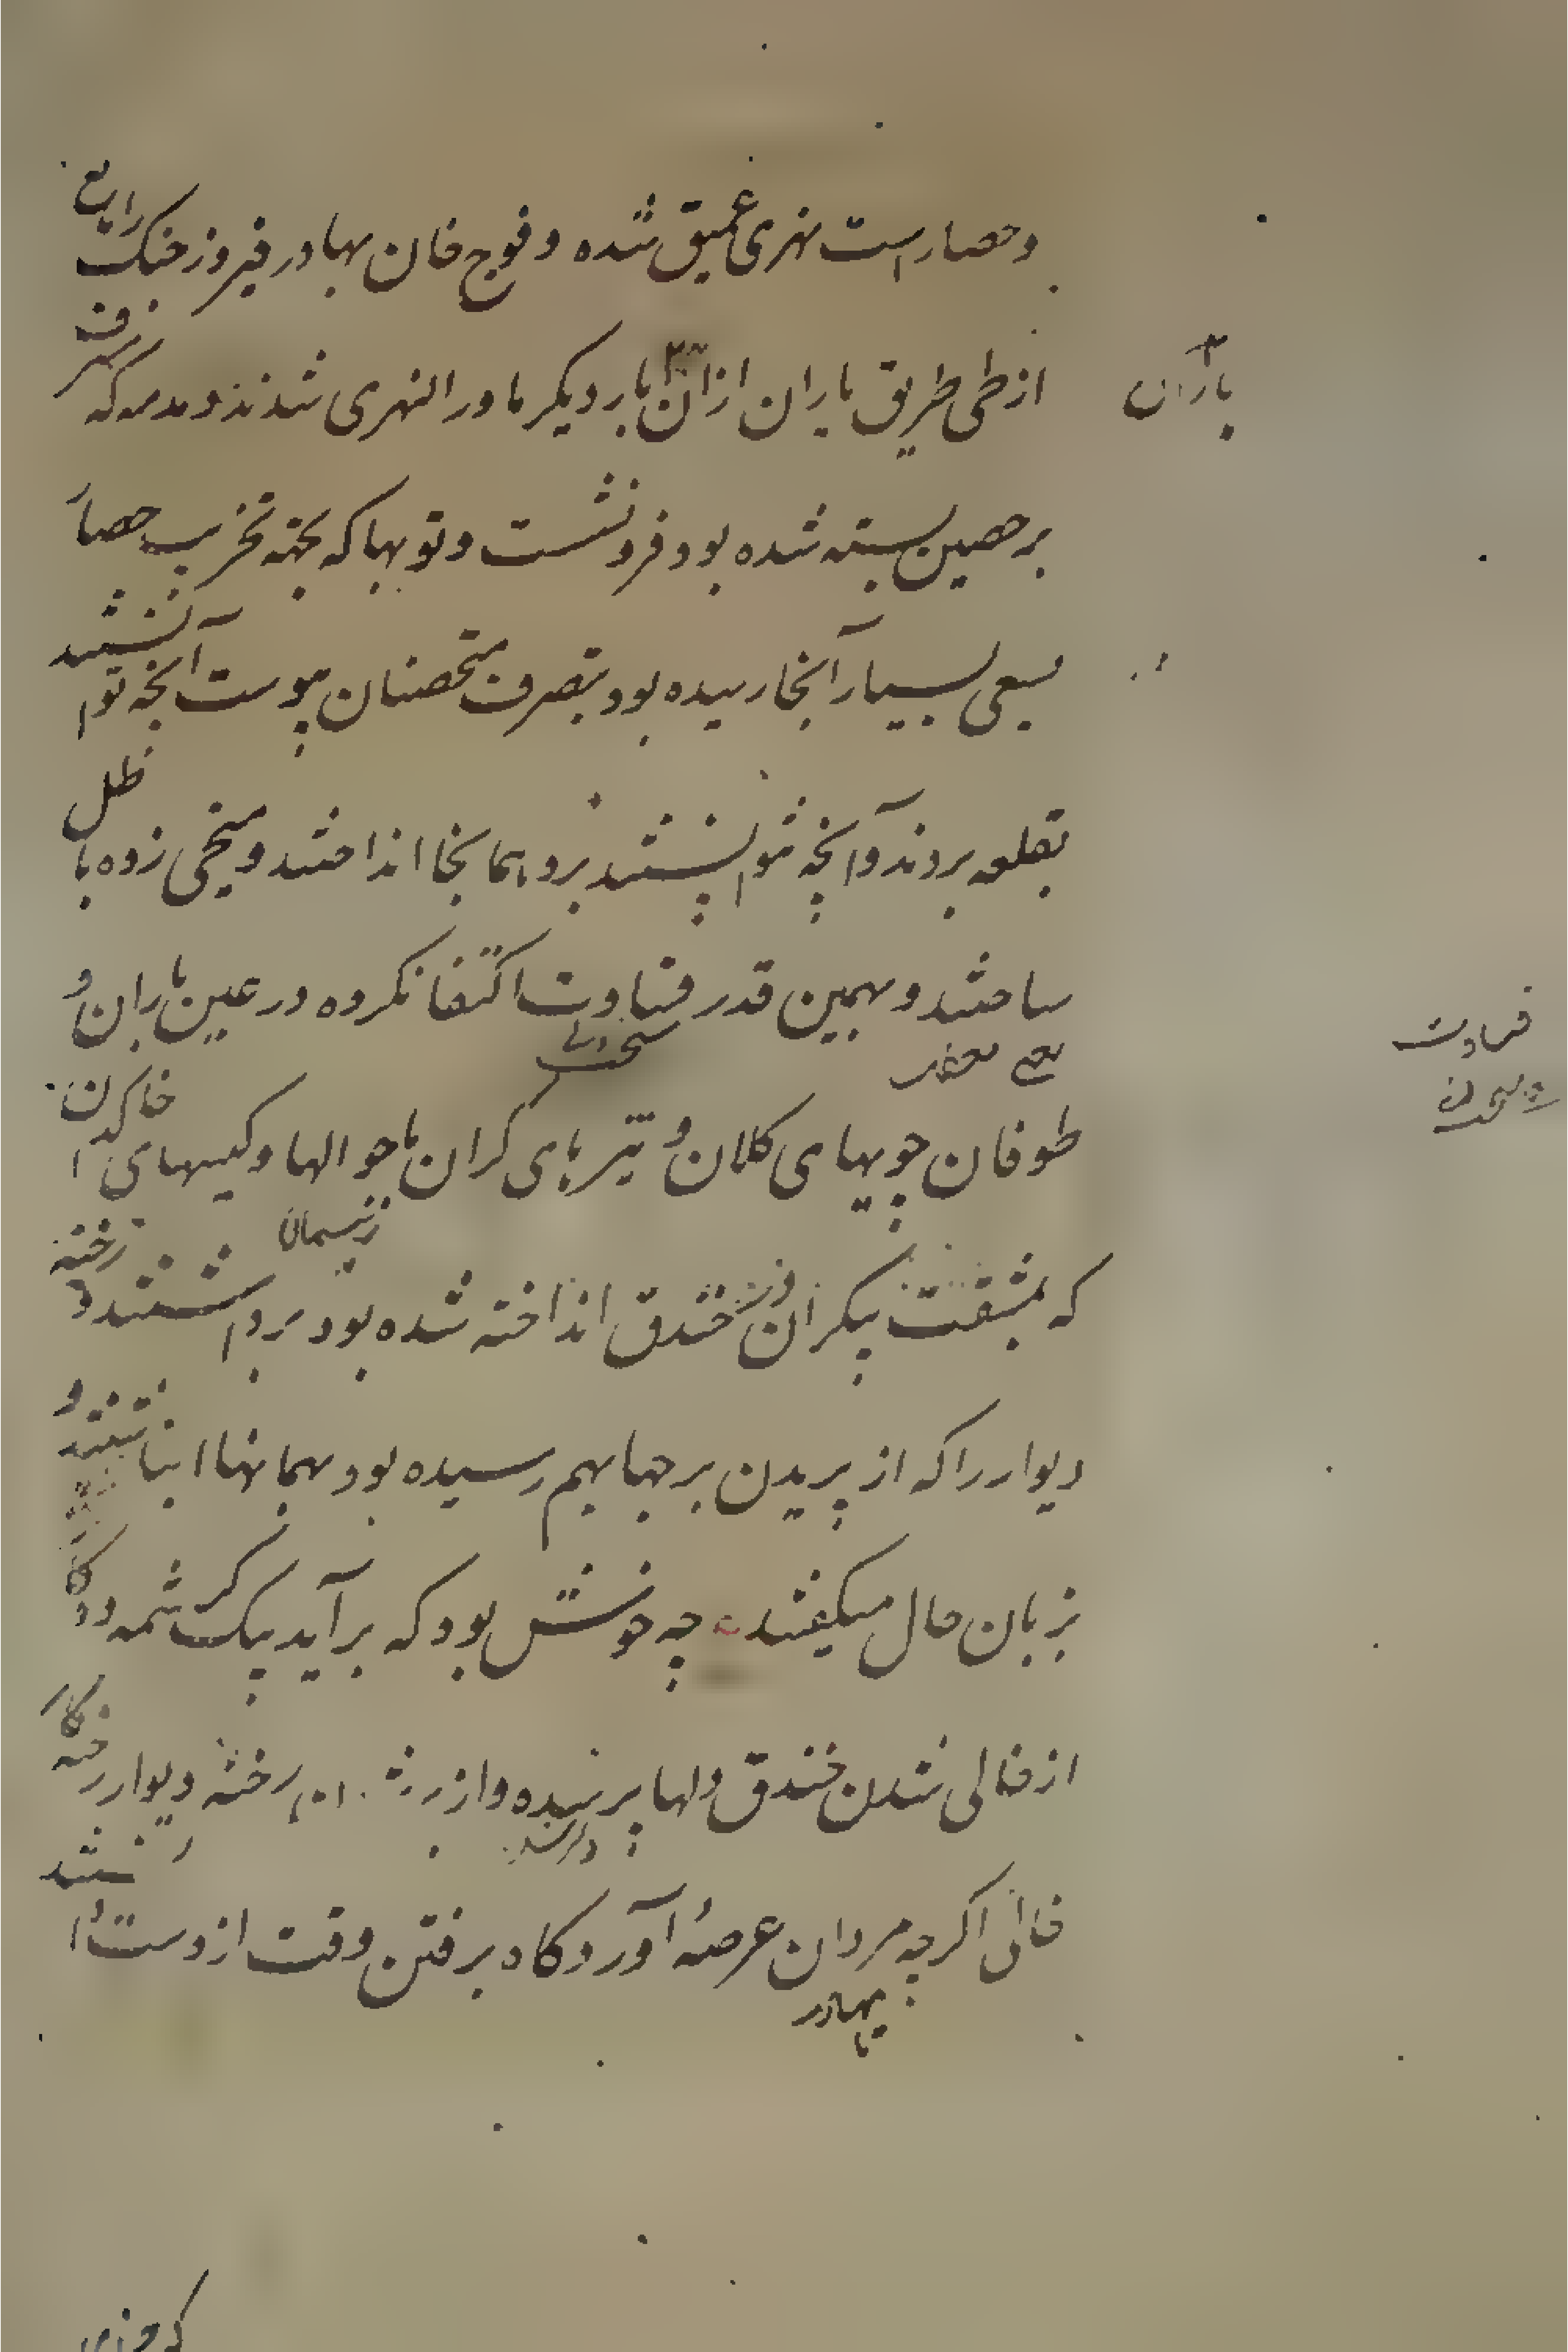 و حصار است نهری عمیق شده و فوج خان بهادر فیروز جنک را
از طی طریق باران ازان بار دیکر ماورالنهری شدند و مدمه که
باران
بر حصین بسته شده بود فرو نشست و توپها که بجهته تخریب حصار
بسعی بسیار آنجا رسیده بود بتصرف متحصنان پیوست آنچه توانستند
بقلعه بردند و آنچه نتوانستند برو همانجا انداختند و میخی زده باطل
ساختند و بهمین قدر قساوت اکتفا نکرده در عین باران و
قساوت
سختدلی
طوفان چوبهای کلان و تیرهای کران با جوالها و کیسهای خاک
که بمشقت بیکران در خندق انداخته شده بود برداشتند و رخنه
ریسمان
دیوار را که از پریدن برجها بهم رسیده بود بهمانها انباشتند و
بزبان حال میکفتند چه خوش بود که برآید بیک کرشمه دو کار
از خالی شدن خندق دلها پر دیده و از رخنه دیوار رخنه
خالی اکرچه مردان عرصهٔ آوردکاه برفتن وقت از دست
بهادر